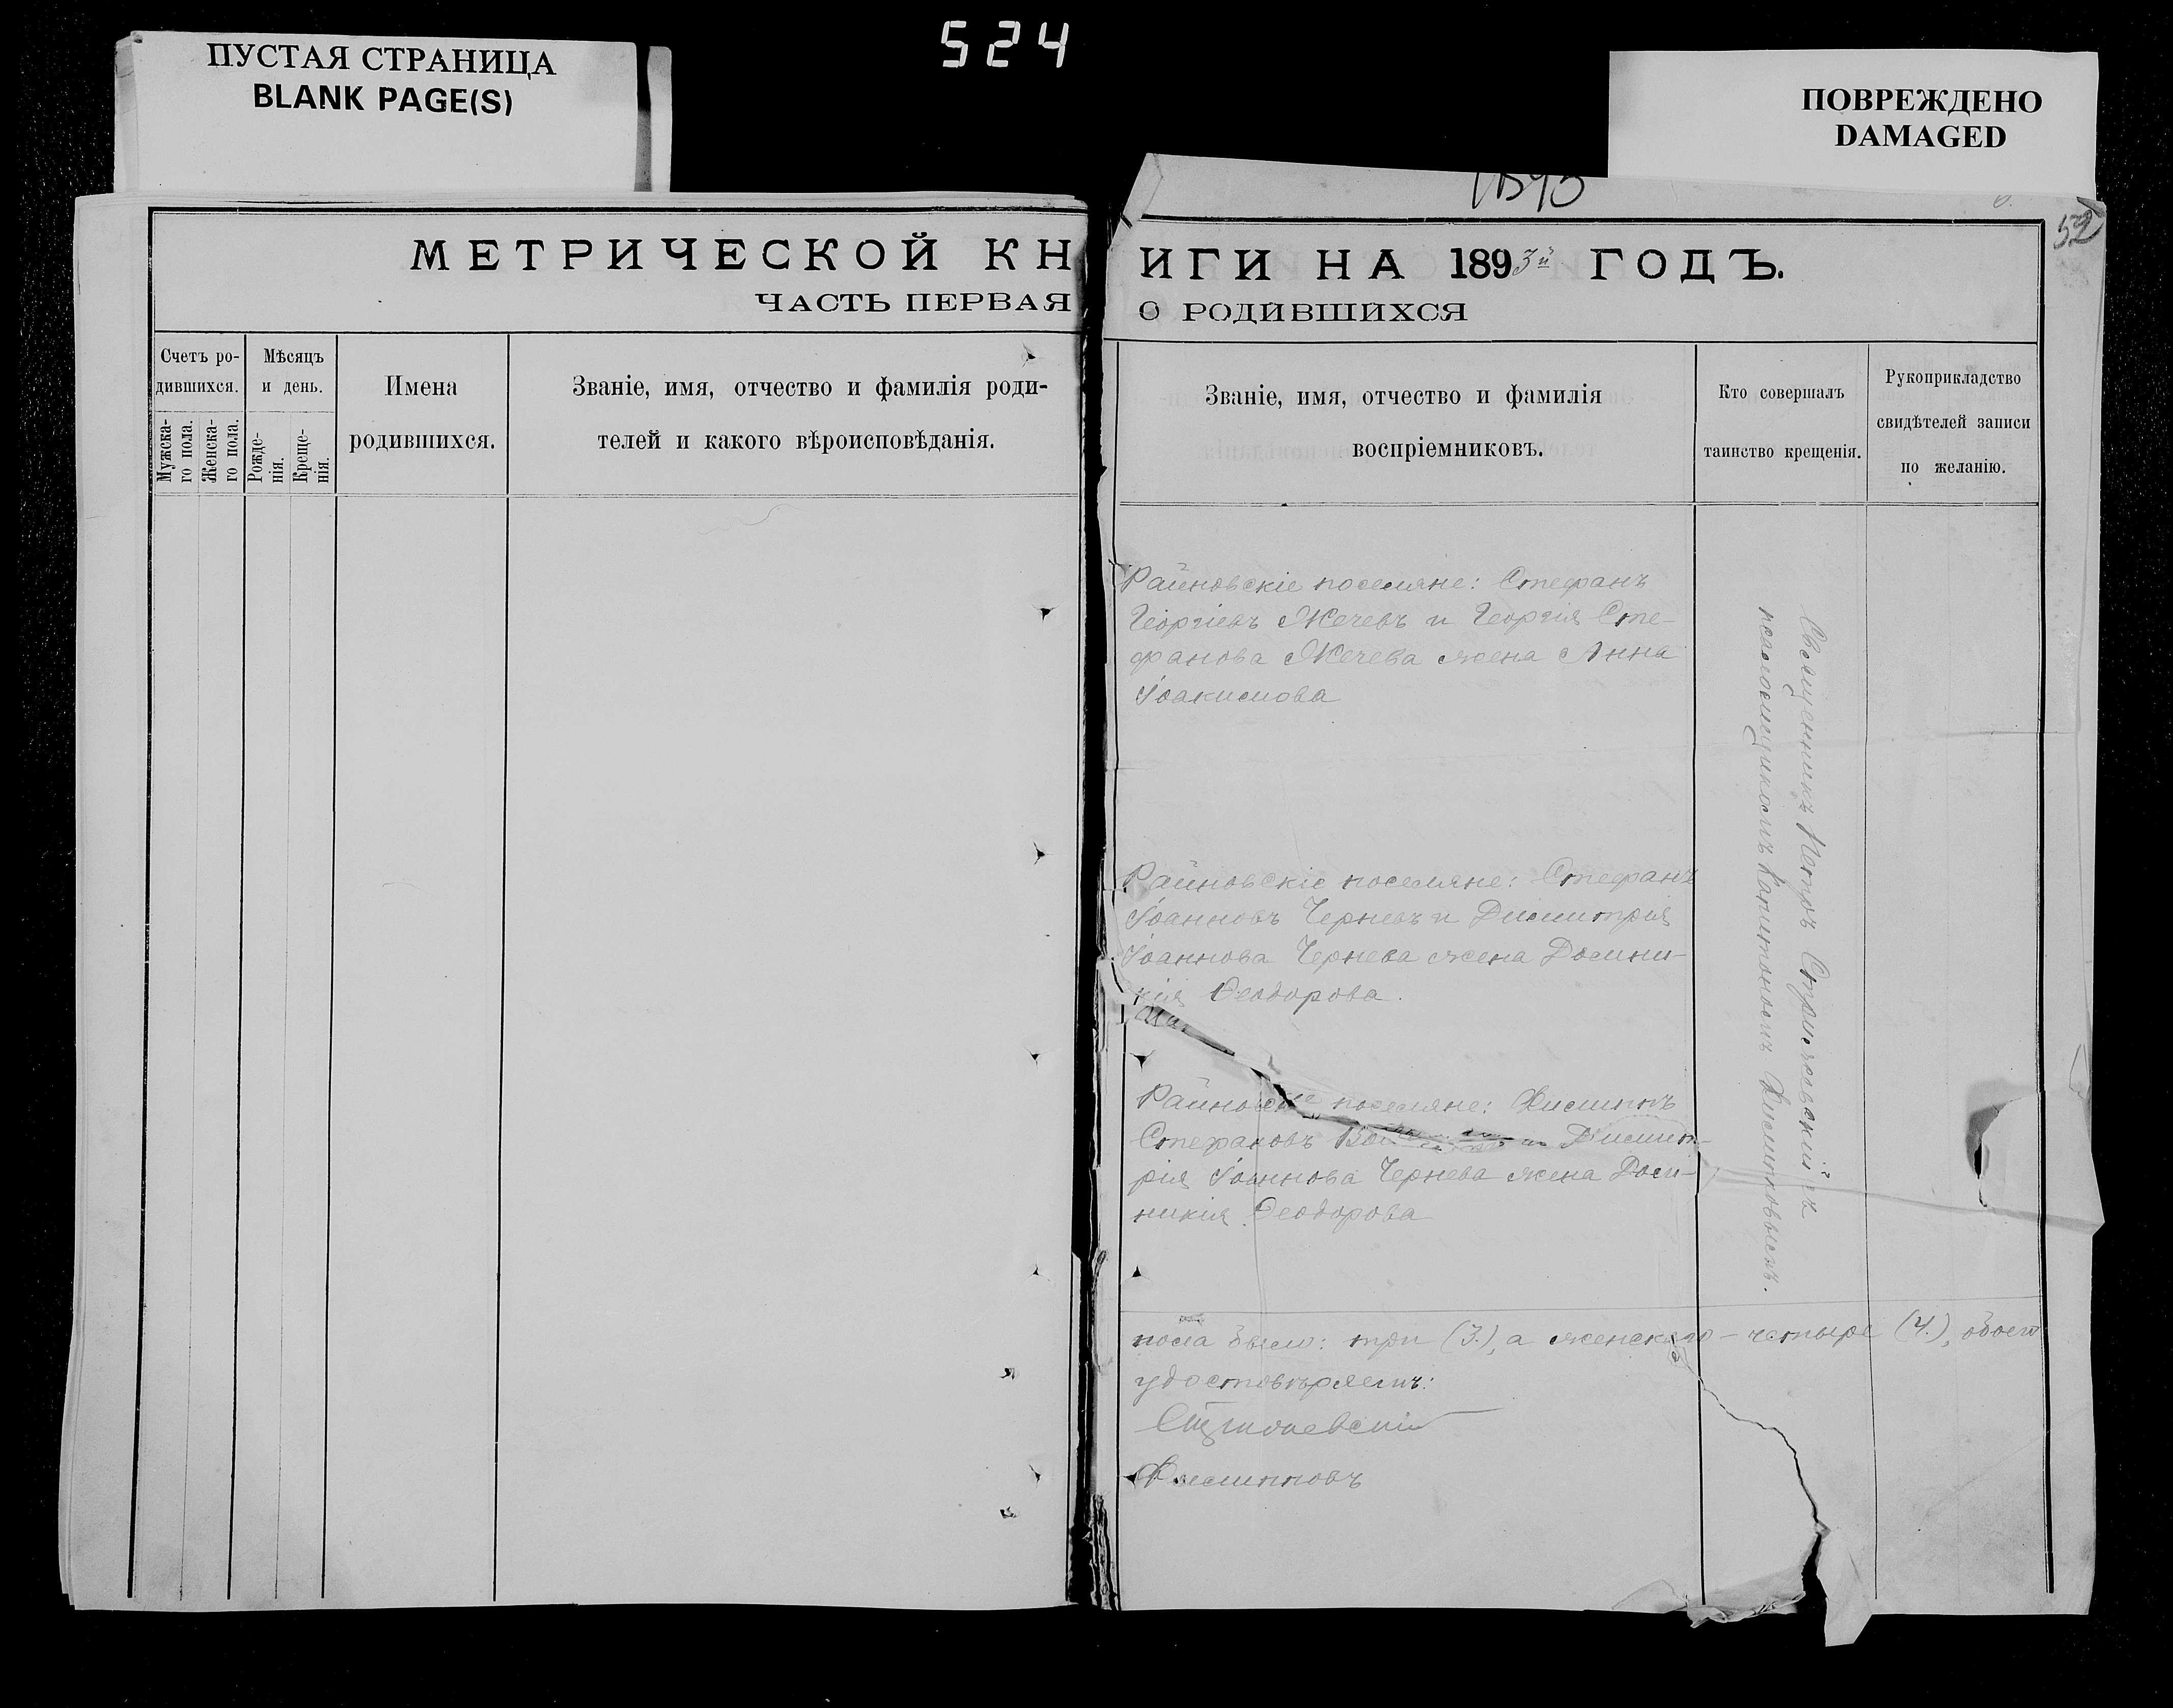 524
ПУСТАЯ СТРАНИЦА
BLANK PAGE(S)
ПОВРЕЖДЕНО
DAMAGED
52
МЕТРИЧЕСКОЙ КН
ИГИ НА 1893й ГОДЪ.
ЧАСТЬ ПЕРВАЯ
О РОДИВШИХСЯ
Счетъ ро-
дившихся.
Мужска-
го пола.
Женска-
го пола.
Мѣсяцъ
и день.
Рожде-
нія.
Креще-
нія.
Имена
родившихся.
Званіе, имя, отчество и фамилія роди-
телей и какого вѣроисповѣданія.
Званіе, имя, отчество и фамилія
воспріемниковъ.
Кто совершалъ
таинство крещенія.
Рукоприкладство
свидѣтелей записи
по желанію.
Райновскіе поселяне: Стефанъ
Георгіевъ Жечевъ и Георгія Сте-
фанова Жечева жена Анна
Іоакимова
Райновскіе поселяне: Стефанъ
Іоанновъ Черневъ и Димитрія
Іоаннова Чернева жена Домни-
кія Ѳеодорова.
Райновскіе поселяне: Филиппъ
Стефановъ и Димит-
рія Іоаннова Чернева жена Дом-
никія Ѳеодорова
Священникъ Петръ съ
псаломщикомъ Капитономъ Филипповымъ.
пола было: три (3.), а женскаго – четыре (4.), обоего
удостовѣряемъ:
Филипповъ